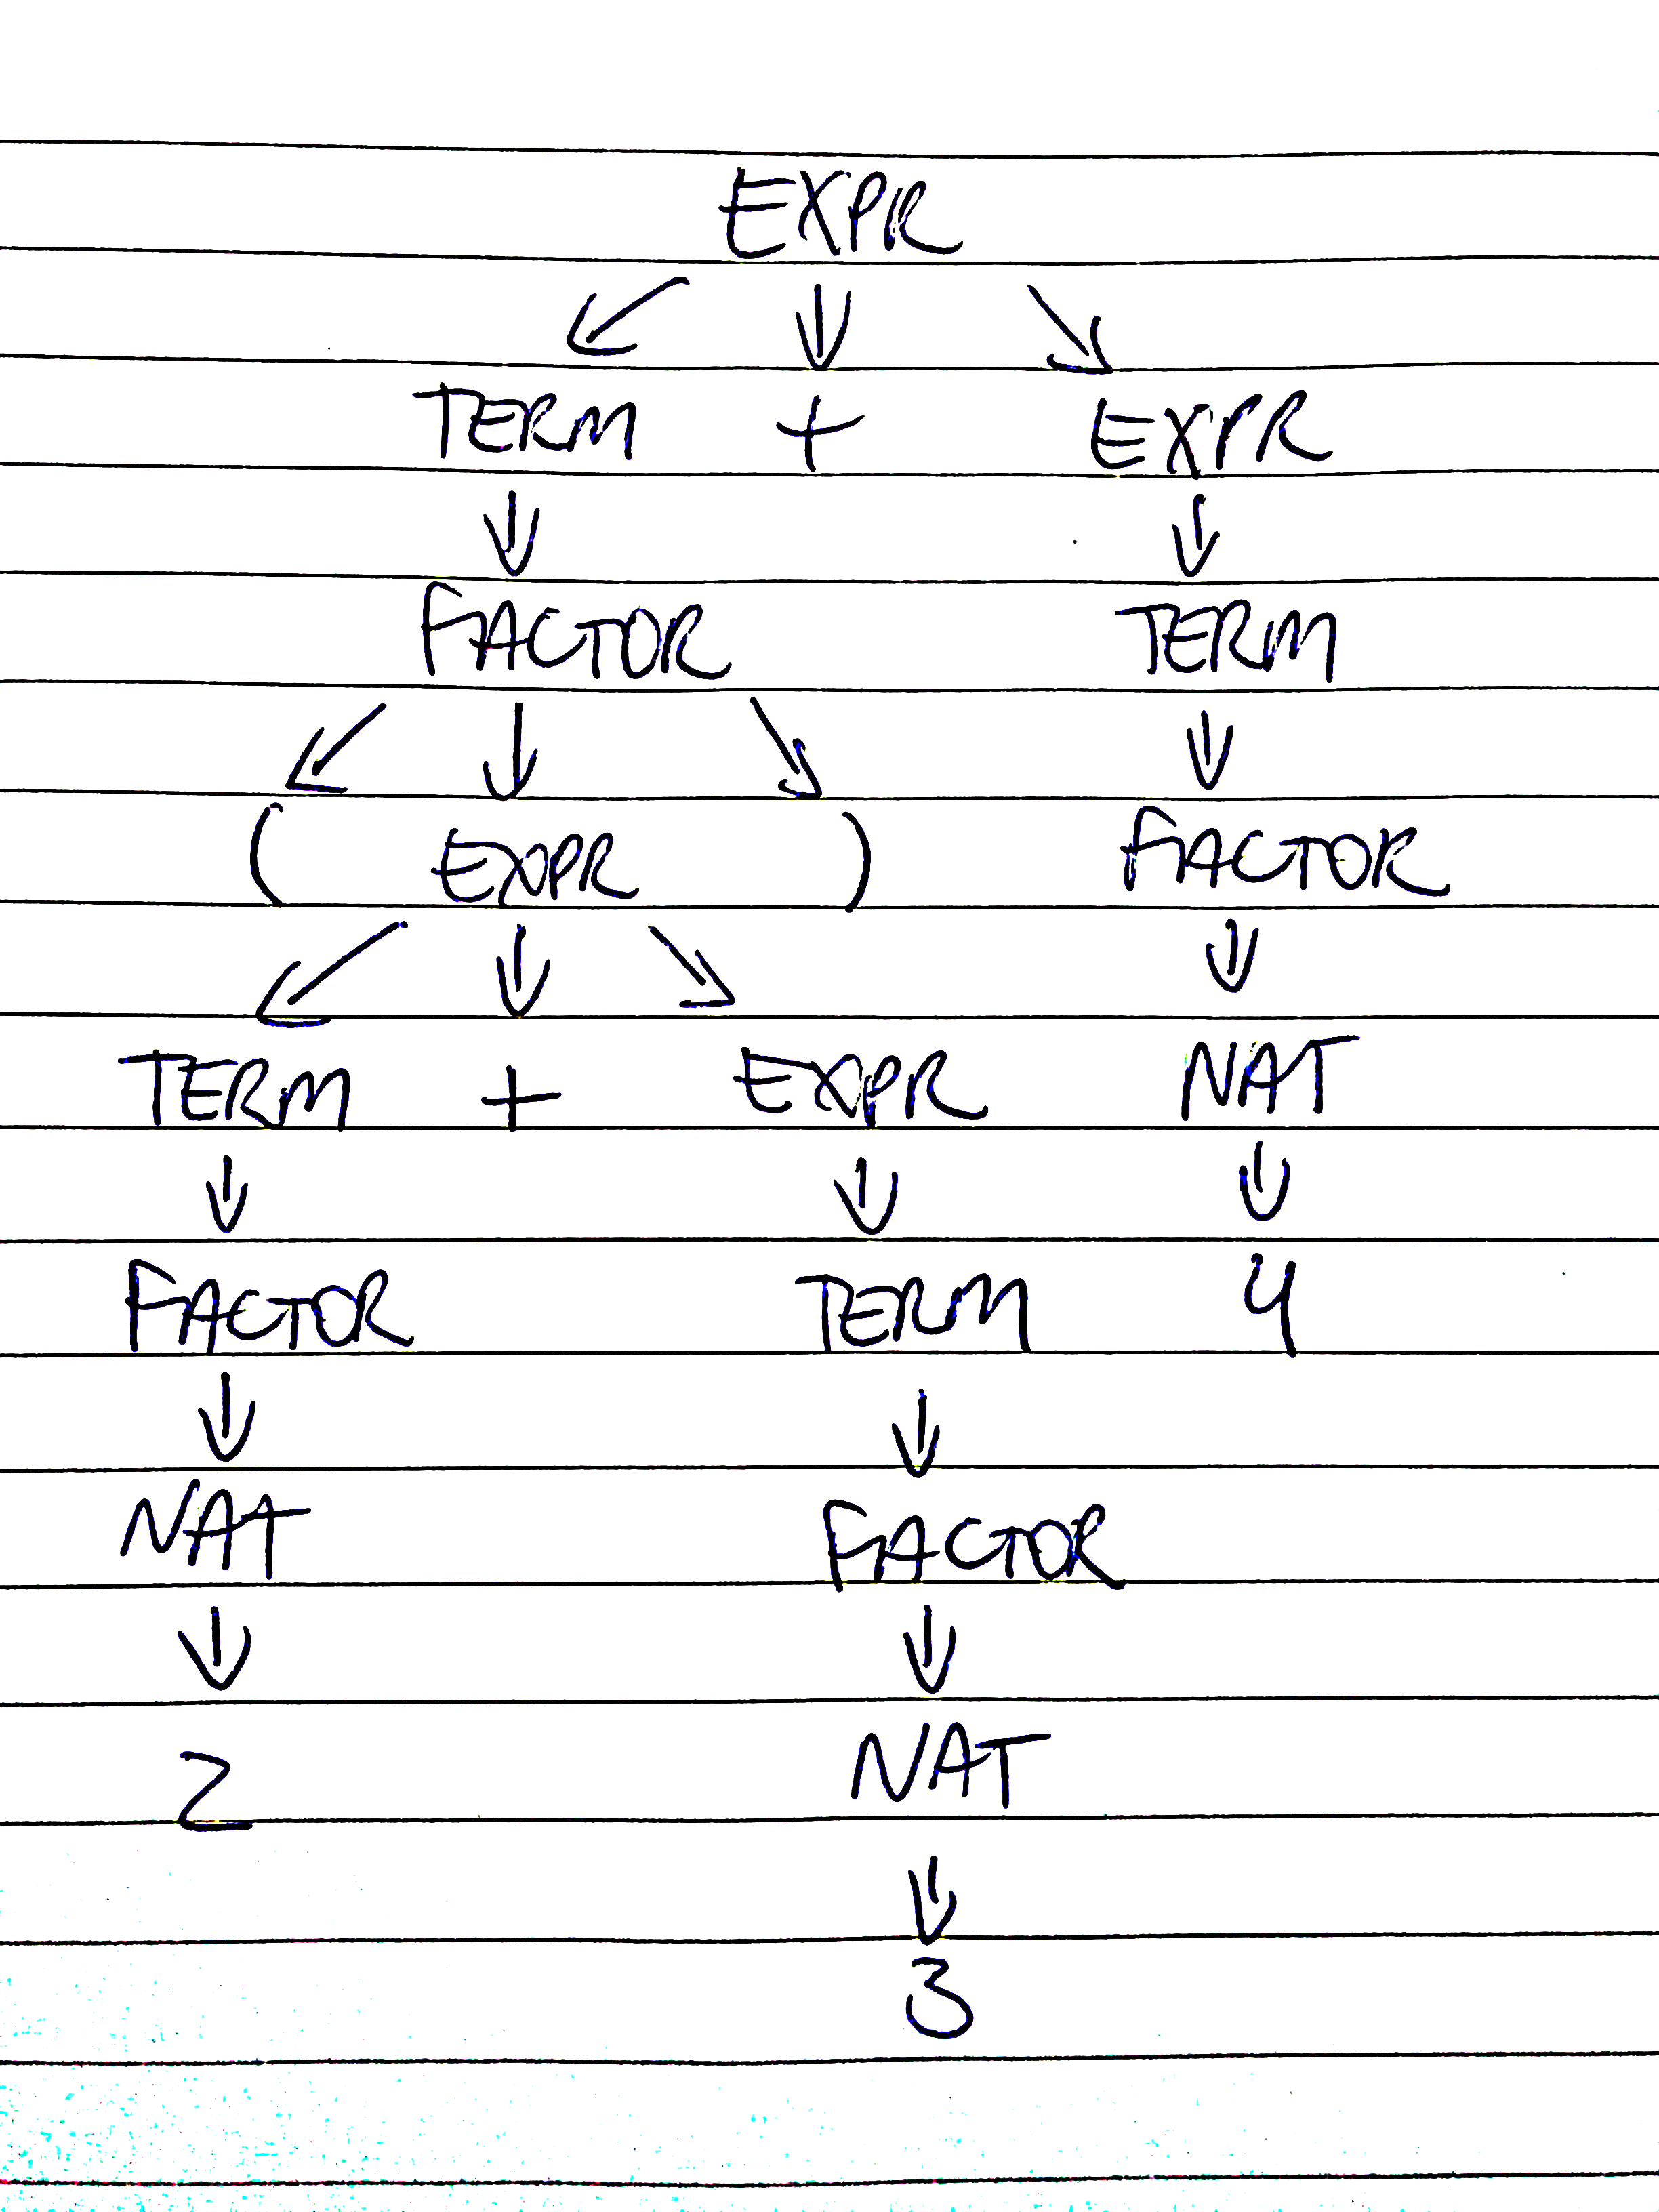 EXPR
TERM + EXPR
FACTOR TERM
( EXPR ) FACTOR
TERM + EXPR NAT
FACTOR TERM 4
NAT FACTOR
2 NAT
3